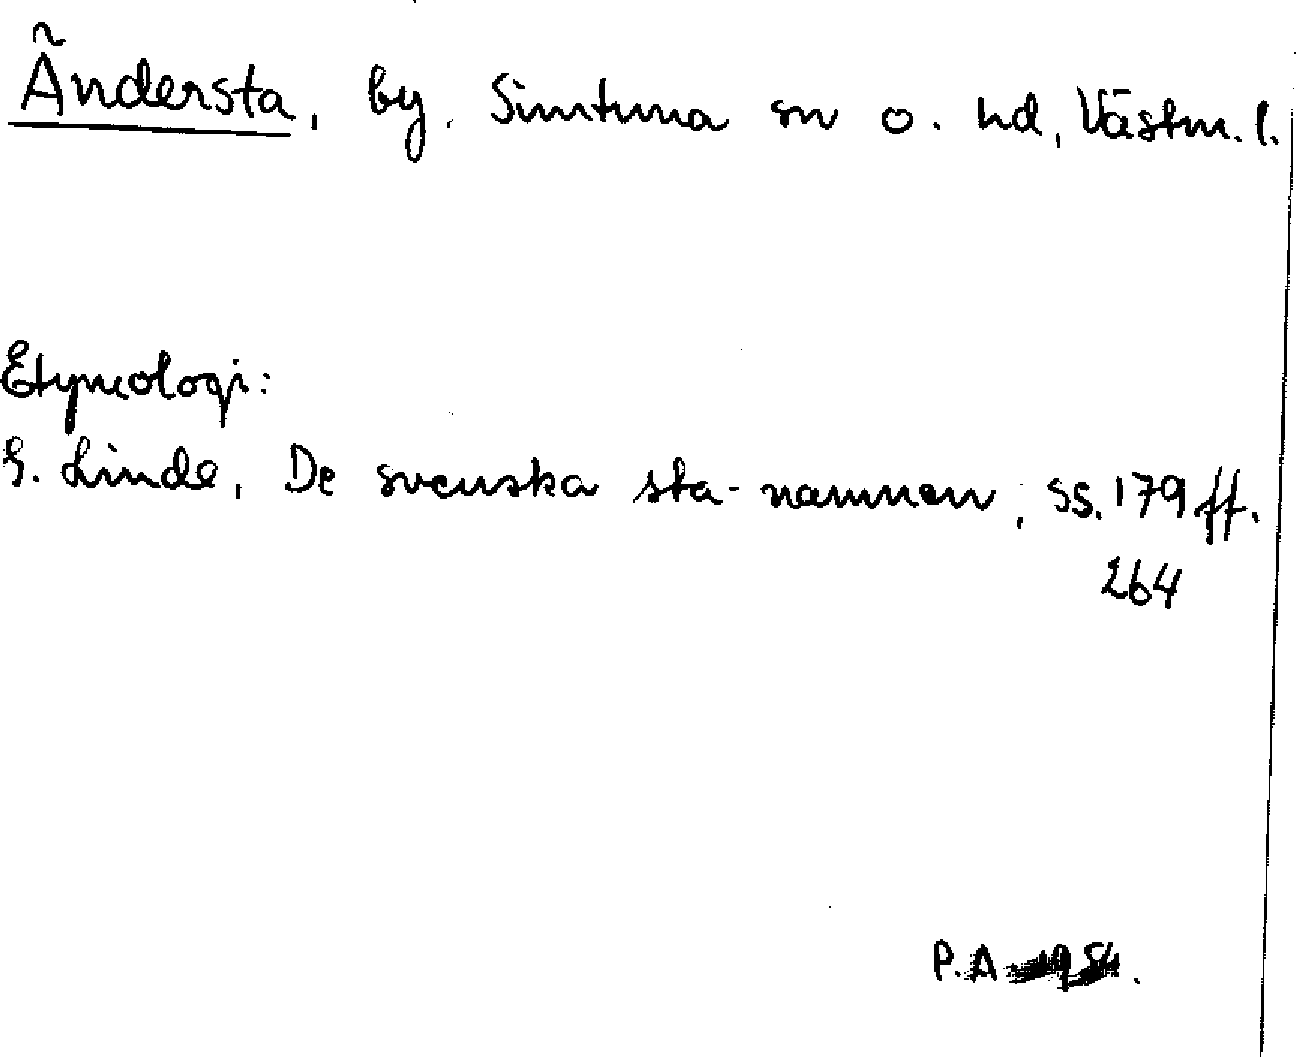 Ändersta, by, Simtuna sn o. hd, Västm. l.
Etymologi:
G. Linde, De svenska sta-namnen, ss. 179 ff.
264
P.A 1951.